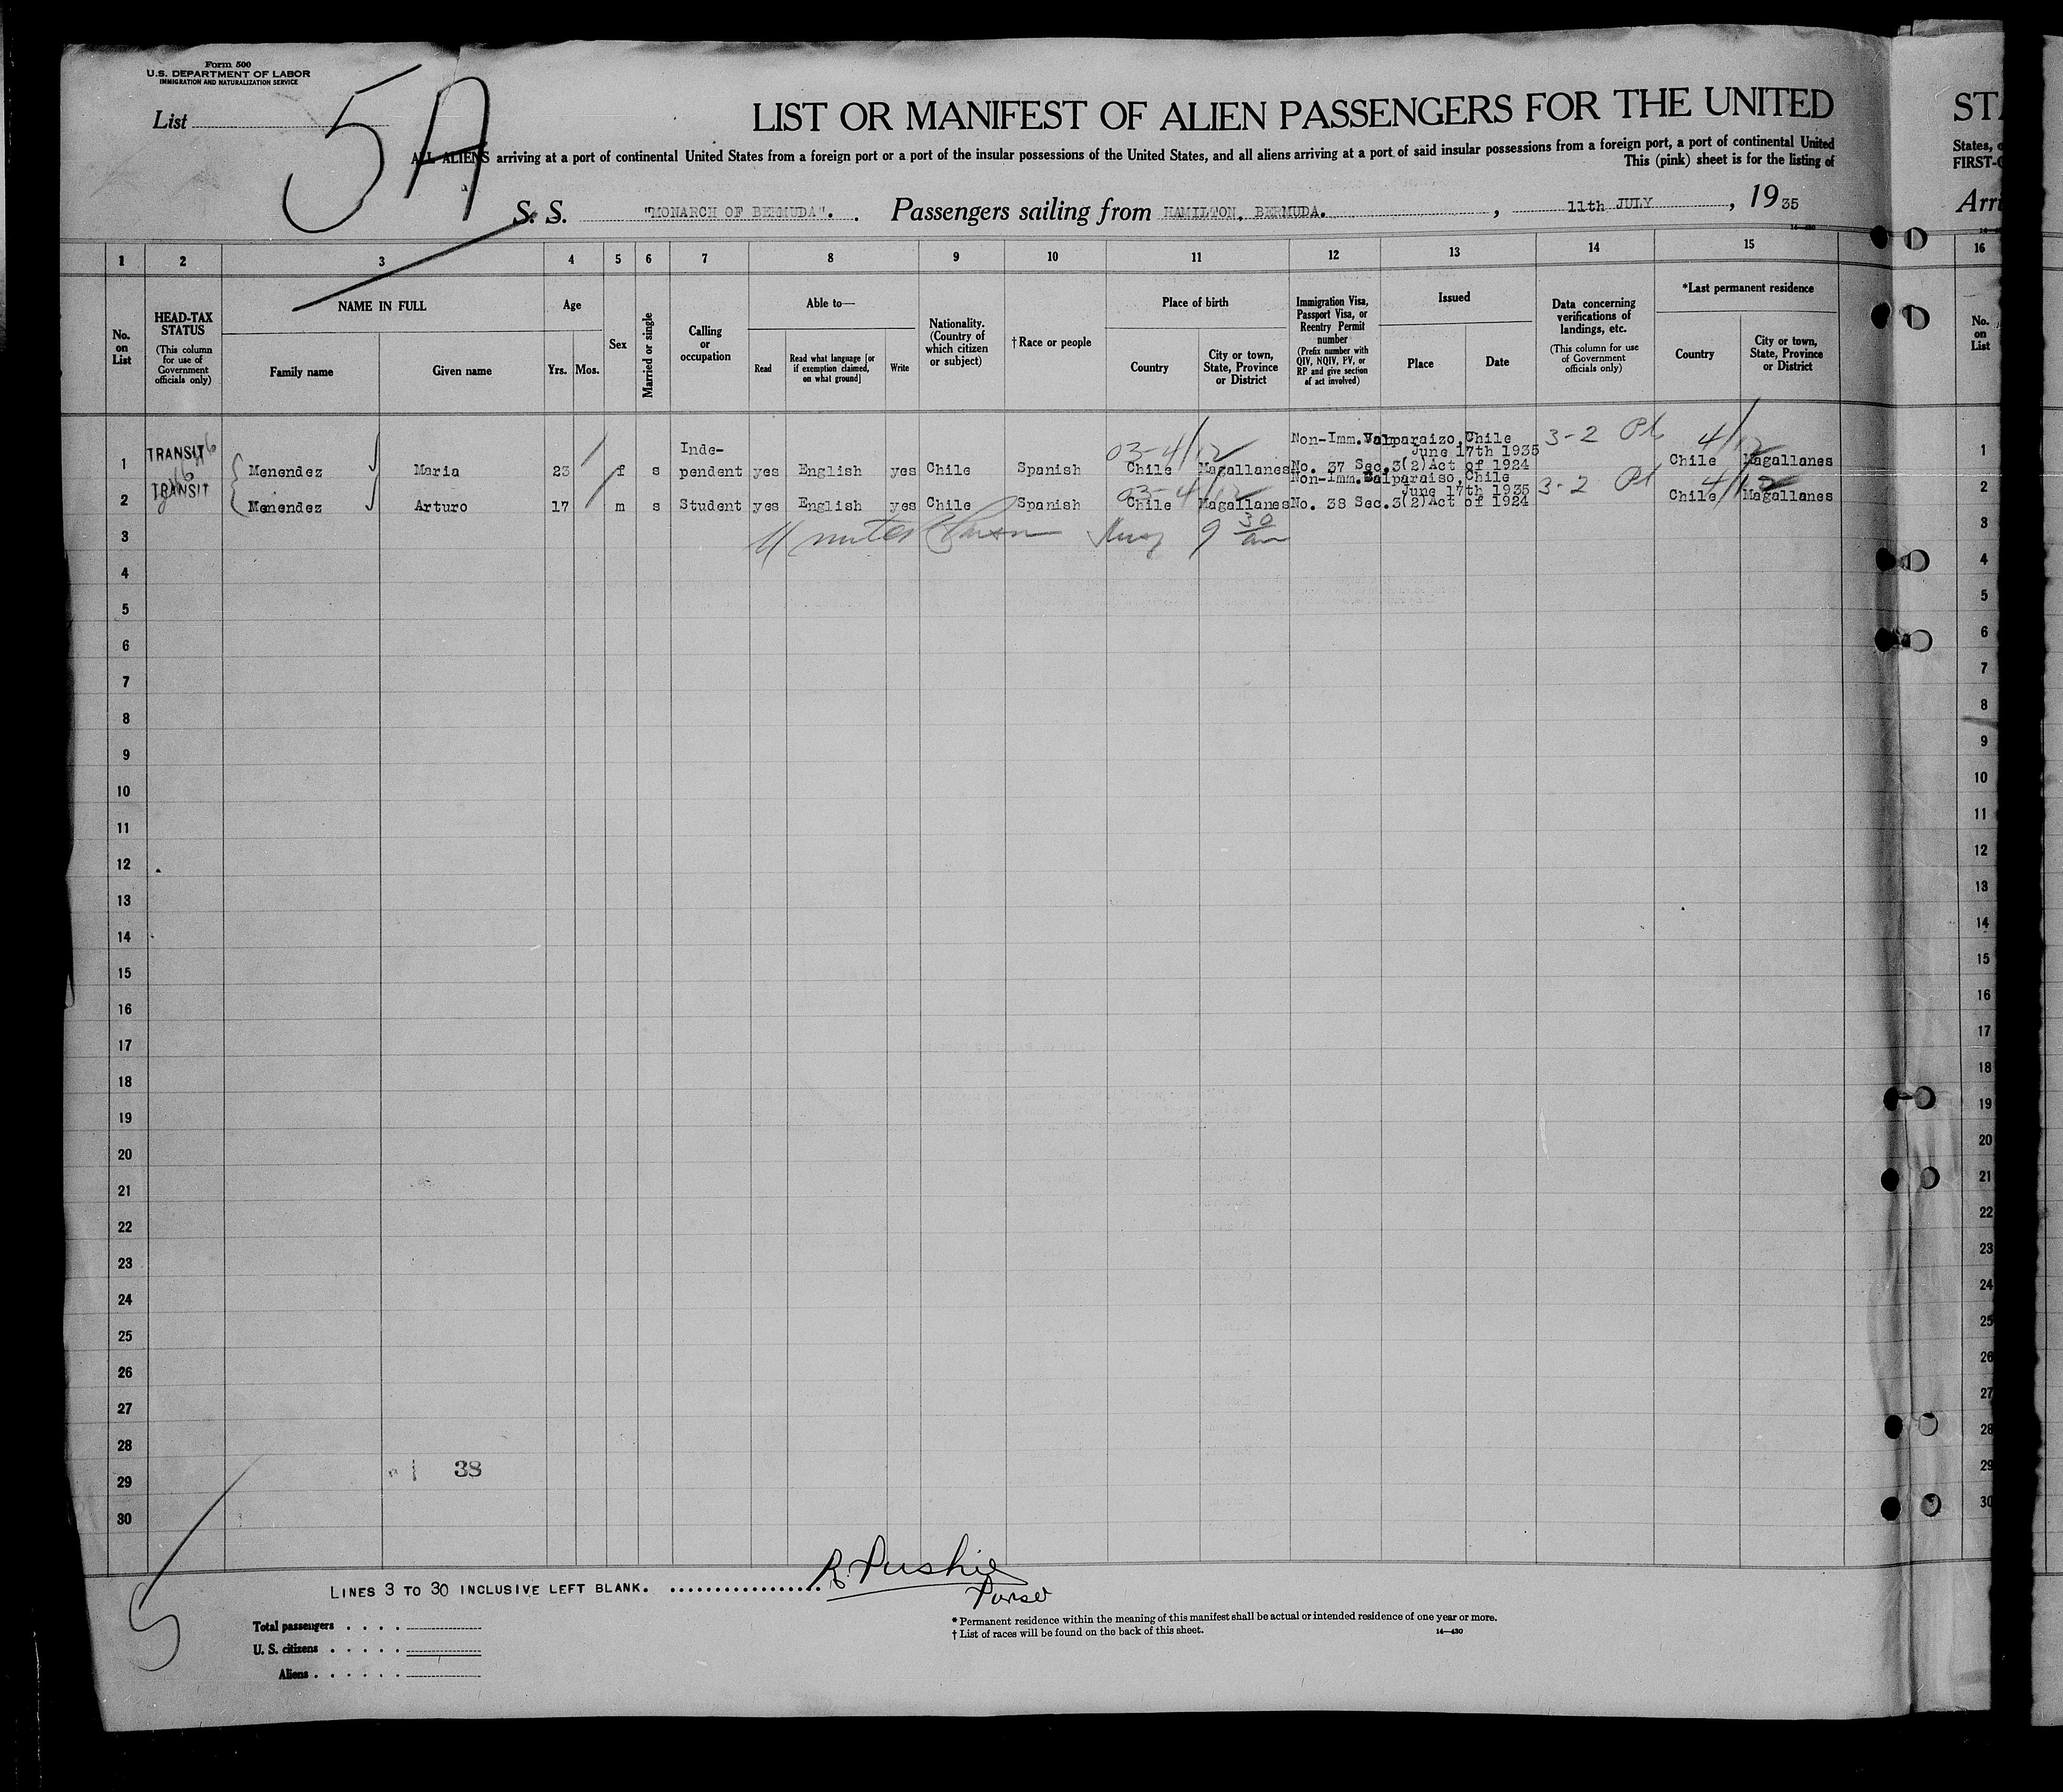 Form 500
U.S. DEPARTMENT OF LABOR
IMMIGRATION AND NATURALIZATION SERVICE
List
5A
LIST OR MANIFEST OF ALIEN PASSENGERS FOR THE UNITED
ALL ALIENS arriving at a port of continental United States from a foreign port or a port of the insular possessions of the United States, and all aliens arriving at a port of said insular possessions from a foreign port, a port of continental United
This (pink) sheet is for the listing of
S. S. "MONARCH OF BERMUDA". Passengers sailing from HAMILTON, BERMUDA. , 11th JULY , 19 35
STA
States, o
FIRST-C
Arri
1 2 3 4 5 6 7 8 9 10 11 12 13 14 15 16
No. on List
HEAD-TAX STATUS
(This column for use of Government officials only)
NAME IN FULL
Family name
Given name
Age
Yrs.
Mos.
Sex
Married or single
Calling or occupation
Able to—
Read
Read what language [or if exemption claimed, on what ground]
Write
Nationality. (Country of which citizen or subject)
†Race or people
Place of birth
Country
City or town, State, Province or District
Immigration Visa, Passport Visa, or Reentry Permit number
(Prefix number with QIV, NQIV, PV, or RP and give section of act involved)
Issued
Place
Date
Data concerning verifications of landings, etc.
(This column for use of Government officials only)
*Last permanent residence
Country
City or town, State, Province or District
No. on List
1 TRANSIT Menendez Maria 23 f s Inde-pendent yes English yes Chile Spanish 03-4/12 Chile Magallanes Non-Imm. Valparaizo, Chile June 17th 1935 No. 37 Sec.3(2)Act of 1924 3-2 4/12 Chile Magallanes 1
2 TRANSIT Menendez Arturo 17 m s Student yes English yes Chile Spanish 03-4/12 Chile Magallanes Non-Imm. Valparaiso, Chile June 17th 1935 No. 38 Sec.3(2)Act of 1924 3-2 4/12 Chile Magallanes 2
3 9 30 am 3
4 4
5 5
6 6
7 7
8 8
9 9
10 10
11 11
12 12
13 13
14 14
15 15
16 16
17 17
18 18
19 19
20 20
21 21
22 22
23 23
24 24
25 25
26 26
27 27
28 28
29 38 29
30 30
LINES 3 TO 30 INCLUSIVE LEFT BLANK.
Purser
Total passengers
U. S. citizens
Aliens
* Permanent residence within the meaning of this manifest shall be actual or intended residence of one year or more.
† List of races will be found on the back of this sheet.
14—430